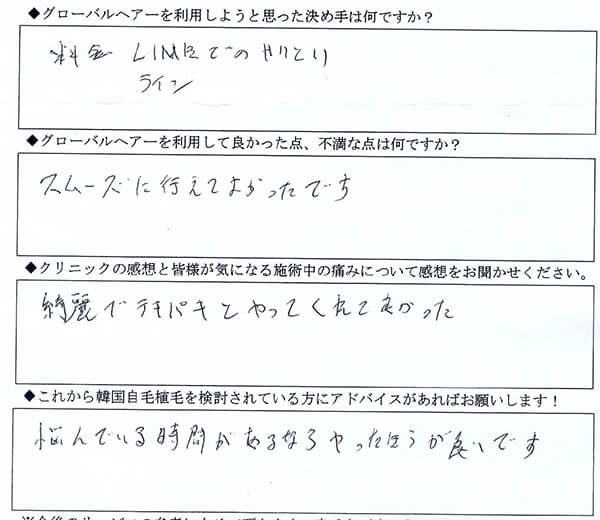 ◆グローバルヘアーを利用しようと思った決め手は何ですか？
料金 LINEでのやりとり
ライン
◆グローバルヘアーを利用して良かった点、不満な点は何ですか？
スムーズに行えてよかったです
◆クリニックの感想と皆様が気になる施術中の痛みについて感想をお聞かせください。
綺麗でテキパキとやってくれてよかった
◆これから韓国自毛植毛を検討されている方にアドバイスがあればお願いします！
悩んでいる時間があるならやったほうが良いです